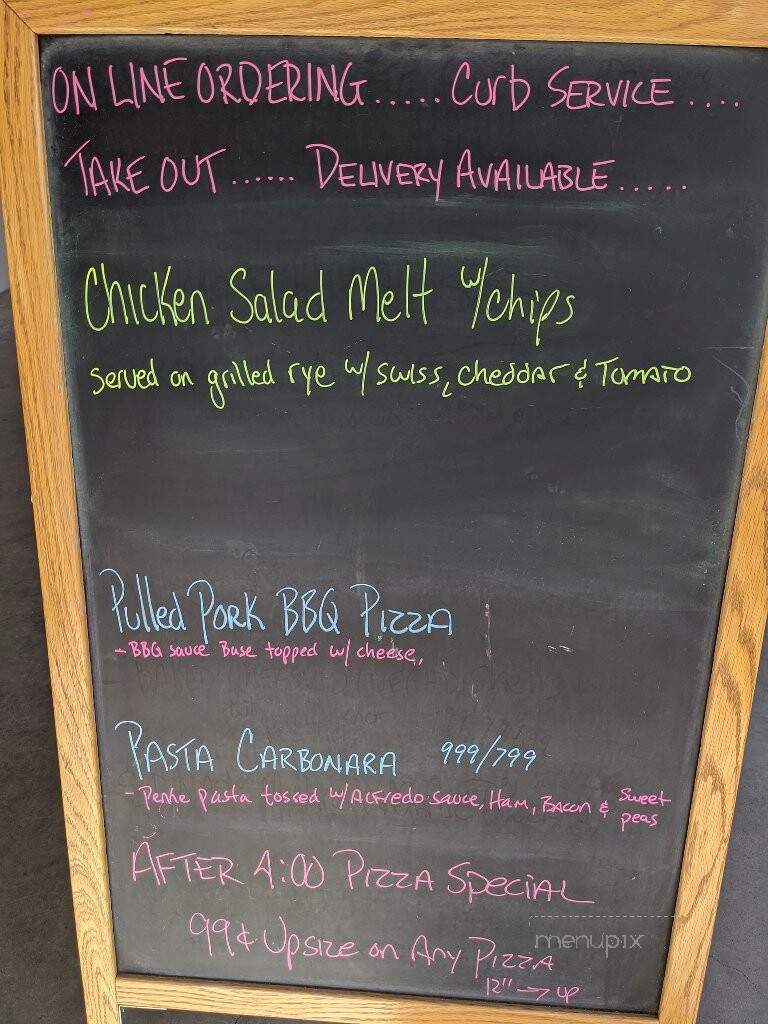 ON LINE ORDERING ..... Curb SERVICE ....
TAKE OUT ...... DELIVERY AVAILABLE .....
Chicken Salad Melt w/chips
served on grilled rye w/ swiss, cheddar & TOMATO
Pulled Pork BBQ PIZZA
- BBQ sauce Base topped w/ cheese,
PASTA CARBONARA 999/799
- Penne pasta tossed w/ ALFredo sauce, Ham, Bacon & Sweet peas
AFTER 4:00 PIZZA Special
99¢ Upsize on Any PIZZA
12" → up
menupix